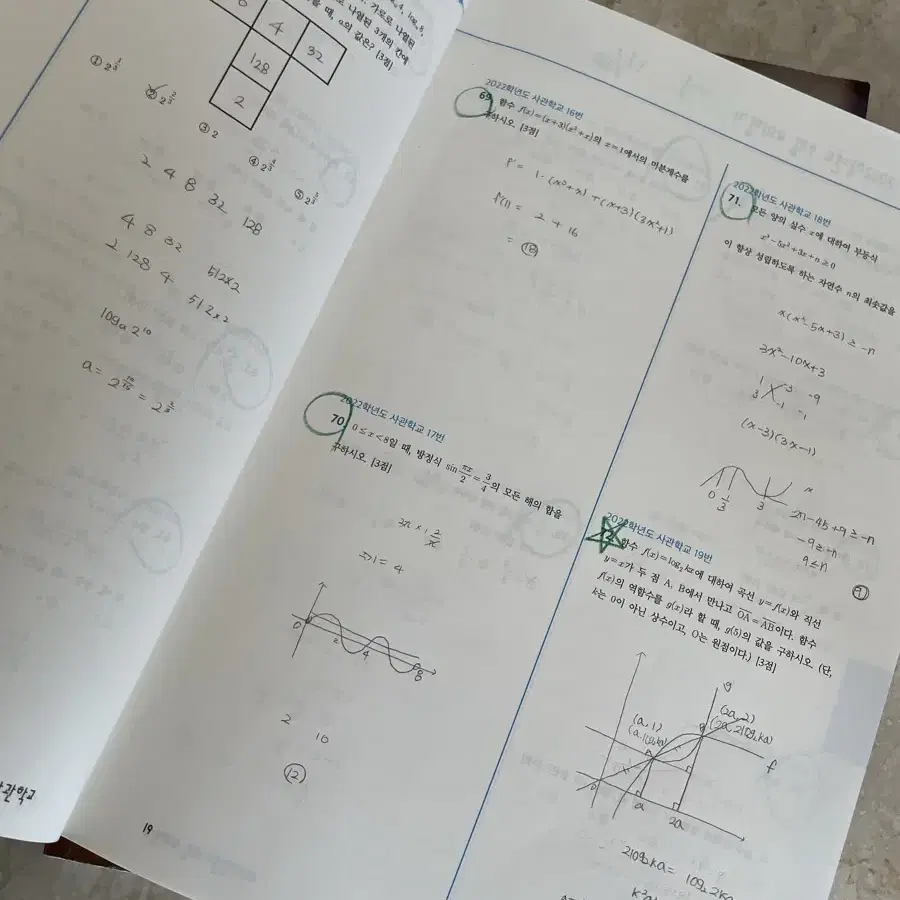 4
32
128
2
나열된 3개의 칸에
때, a의 값은? [3점]
②
③ 2
④
⑤
2 4 8 32 128
4 8 32 512×2
2 128 4 512×2
19
2022학년도 사관학교 16번
69. 함수 f(x)=(x+3)(x³+x)의 x=1에서의 미분계수를
구하시오. [3점]
f' = 1·(x³+x) + (x+3)(3x²+1)
f'(1) = 2 + 16
= 18
2022학년도 사관학교 17번
70. 0≤x<8일 때, 방정식 sin πx/2 = 3/4의 모든 해의 합을
구하시오. [3점]
주기 = 4
0 2 4 8
2 10
12
2022학년도 사관학교 18번
71. 모든 양의 실수 x에 대하여 부등식
x³-5x²+3x+n≥0
이 항상 성립하도록 하는 자연수 n의 최솟값을
x(x²-5x+3) ≥ -n
3x²-10x+3
1 -3 -9
3 -1 -1
(x-3)(3x-1)
0 1/3 3
27-45+9≥-n
-9≥-n
9≤n
9
2022학년도 사관학교 19번
함수 f(x)=log₂kx에 대하여 곡선 y=f(x)와 직선
y=x가 두 점 A, B에서 만나고 OA=AB이다. 함수
f(x)의 역함수를 g(x)라 할 때, g(5)의 값을 구하시오. (단,
k는 0이 아닌 상수이고, O는 원점이다.) [3점]
g
(2a, 2)
(2a, 2log₂ka)
(a, 1)
(a, log₂ka)
B
A
f
0 a 2a
2log₂ka = log₂2ka